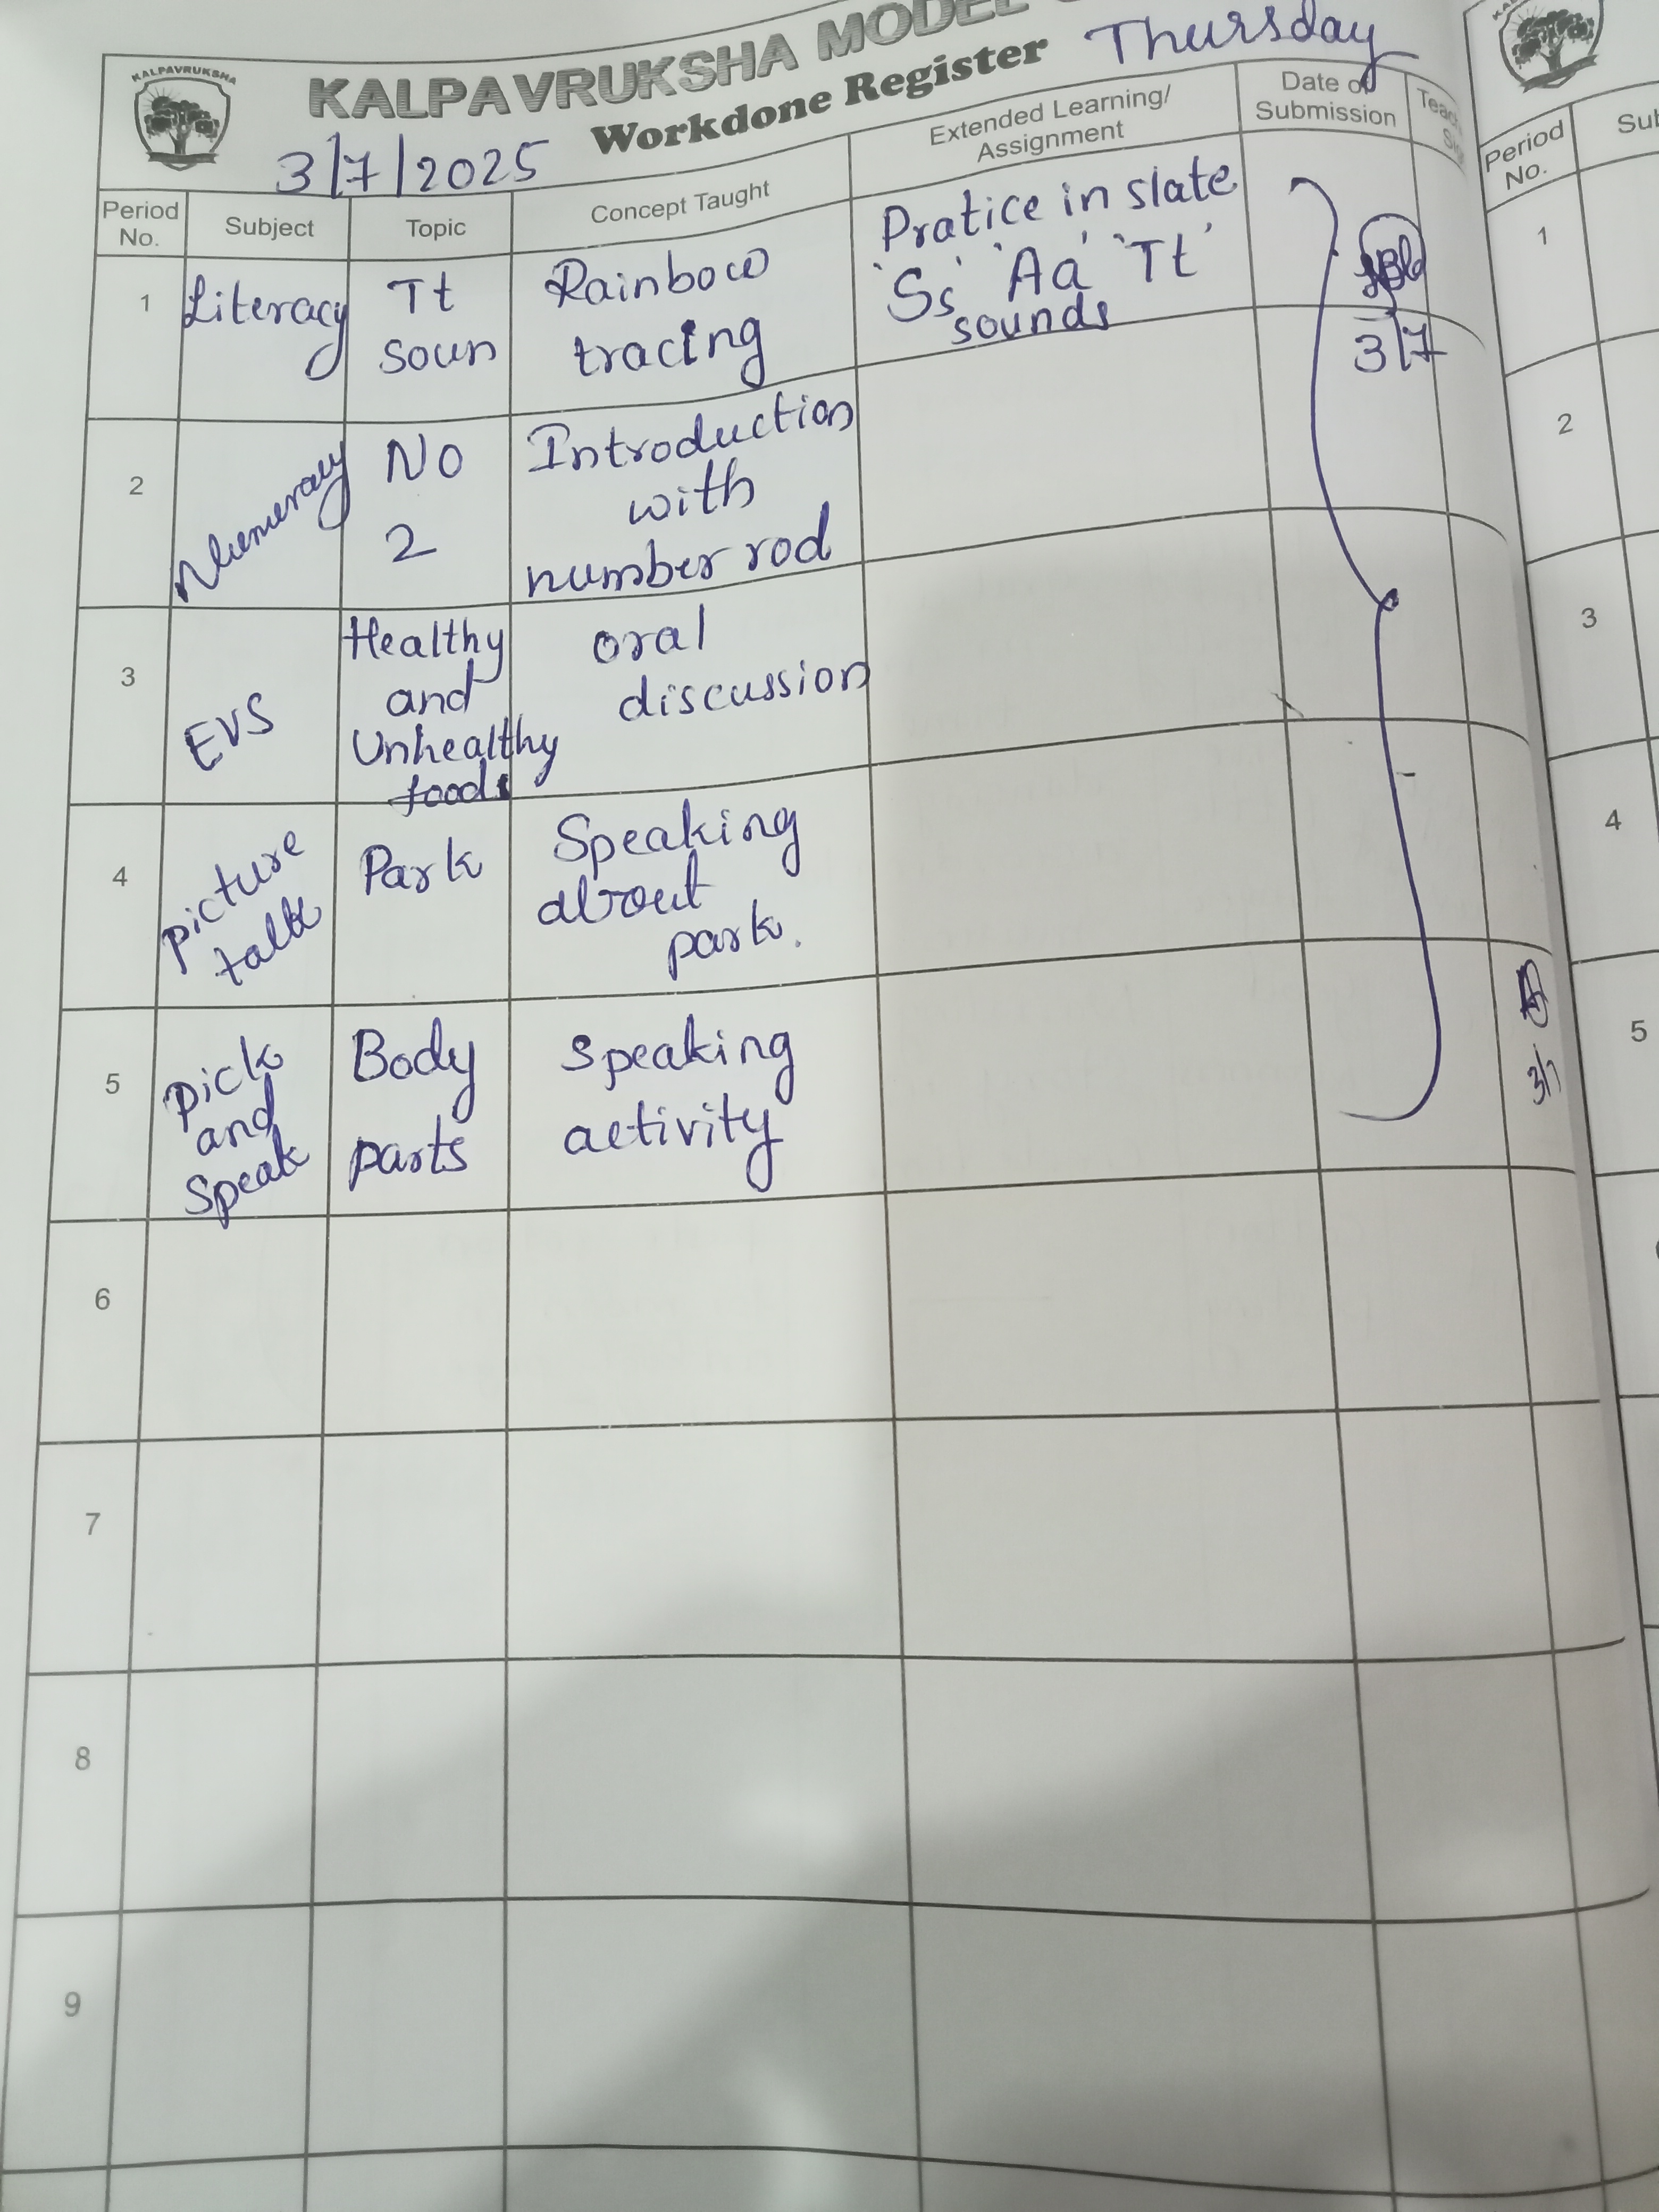 KALPAVRUKSHA
KALPAVRUKSHA MODEL
Workdone Register
Thursday
3/7/2025
Period No.
Subject
Topic
Concept Taught
Extended Learning/ Assignment
Date of Submission
1
Literacy
Tt
soun
Rainbow
tracing
Pratice in slate
'Ss' 'Aa' 'Tt'
sounds
3/7
2
Numeracy
No
2
Introduction
with
number rod
3
EVS
Healthy
and
Unhealthy
foods
oral
discussion
4
picture
talk
Park
Speaking
about
park.
5
Pick
and
Speak
Body
parts
Speaking
activity
3/7
6
7
8
9
Period
No.
1
2
3
4
5